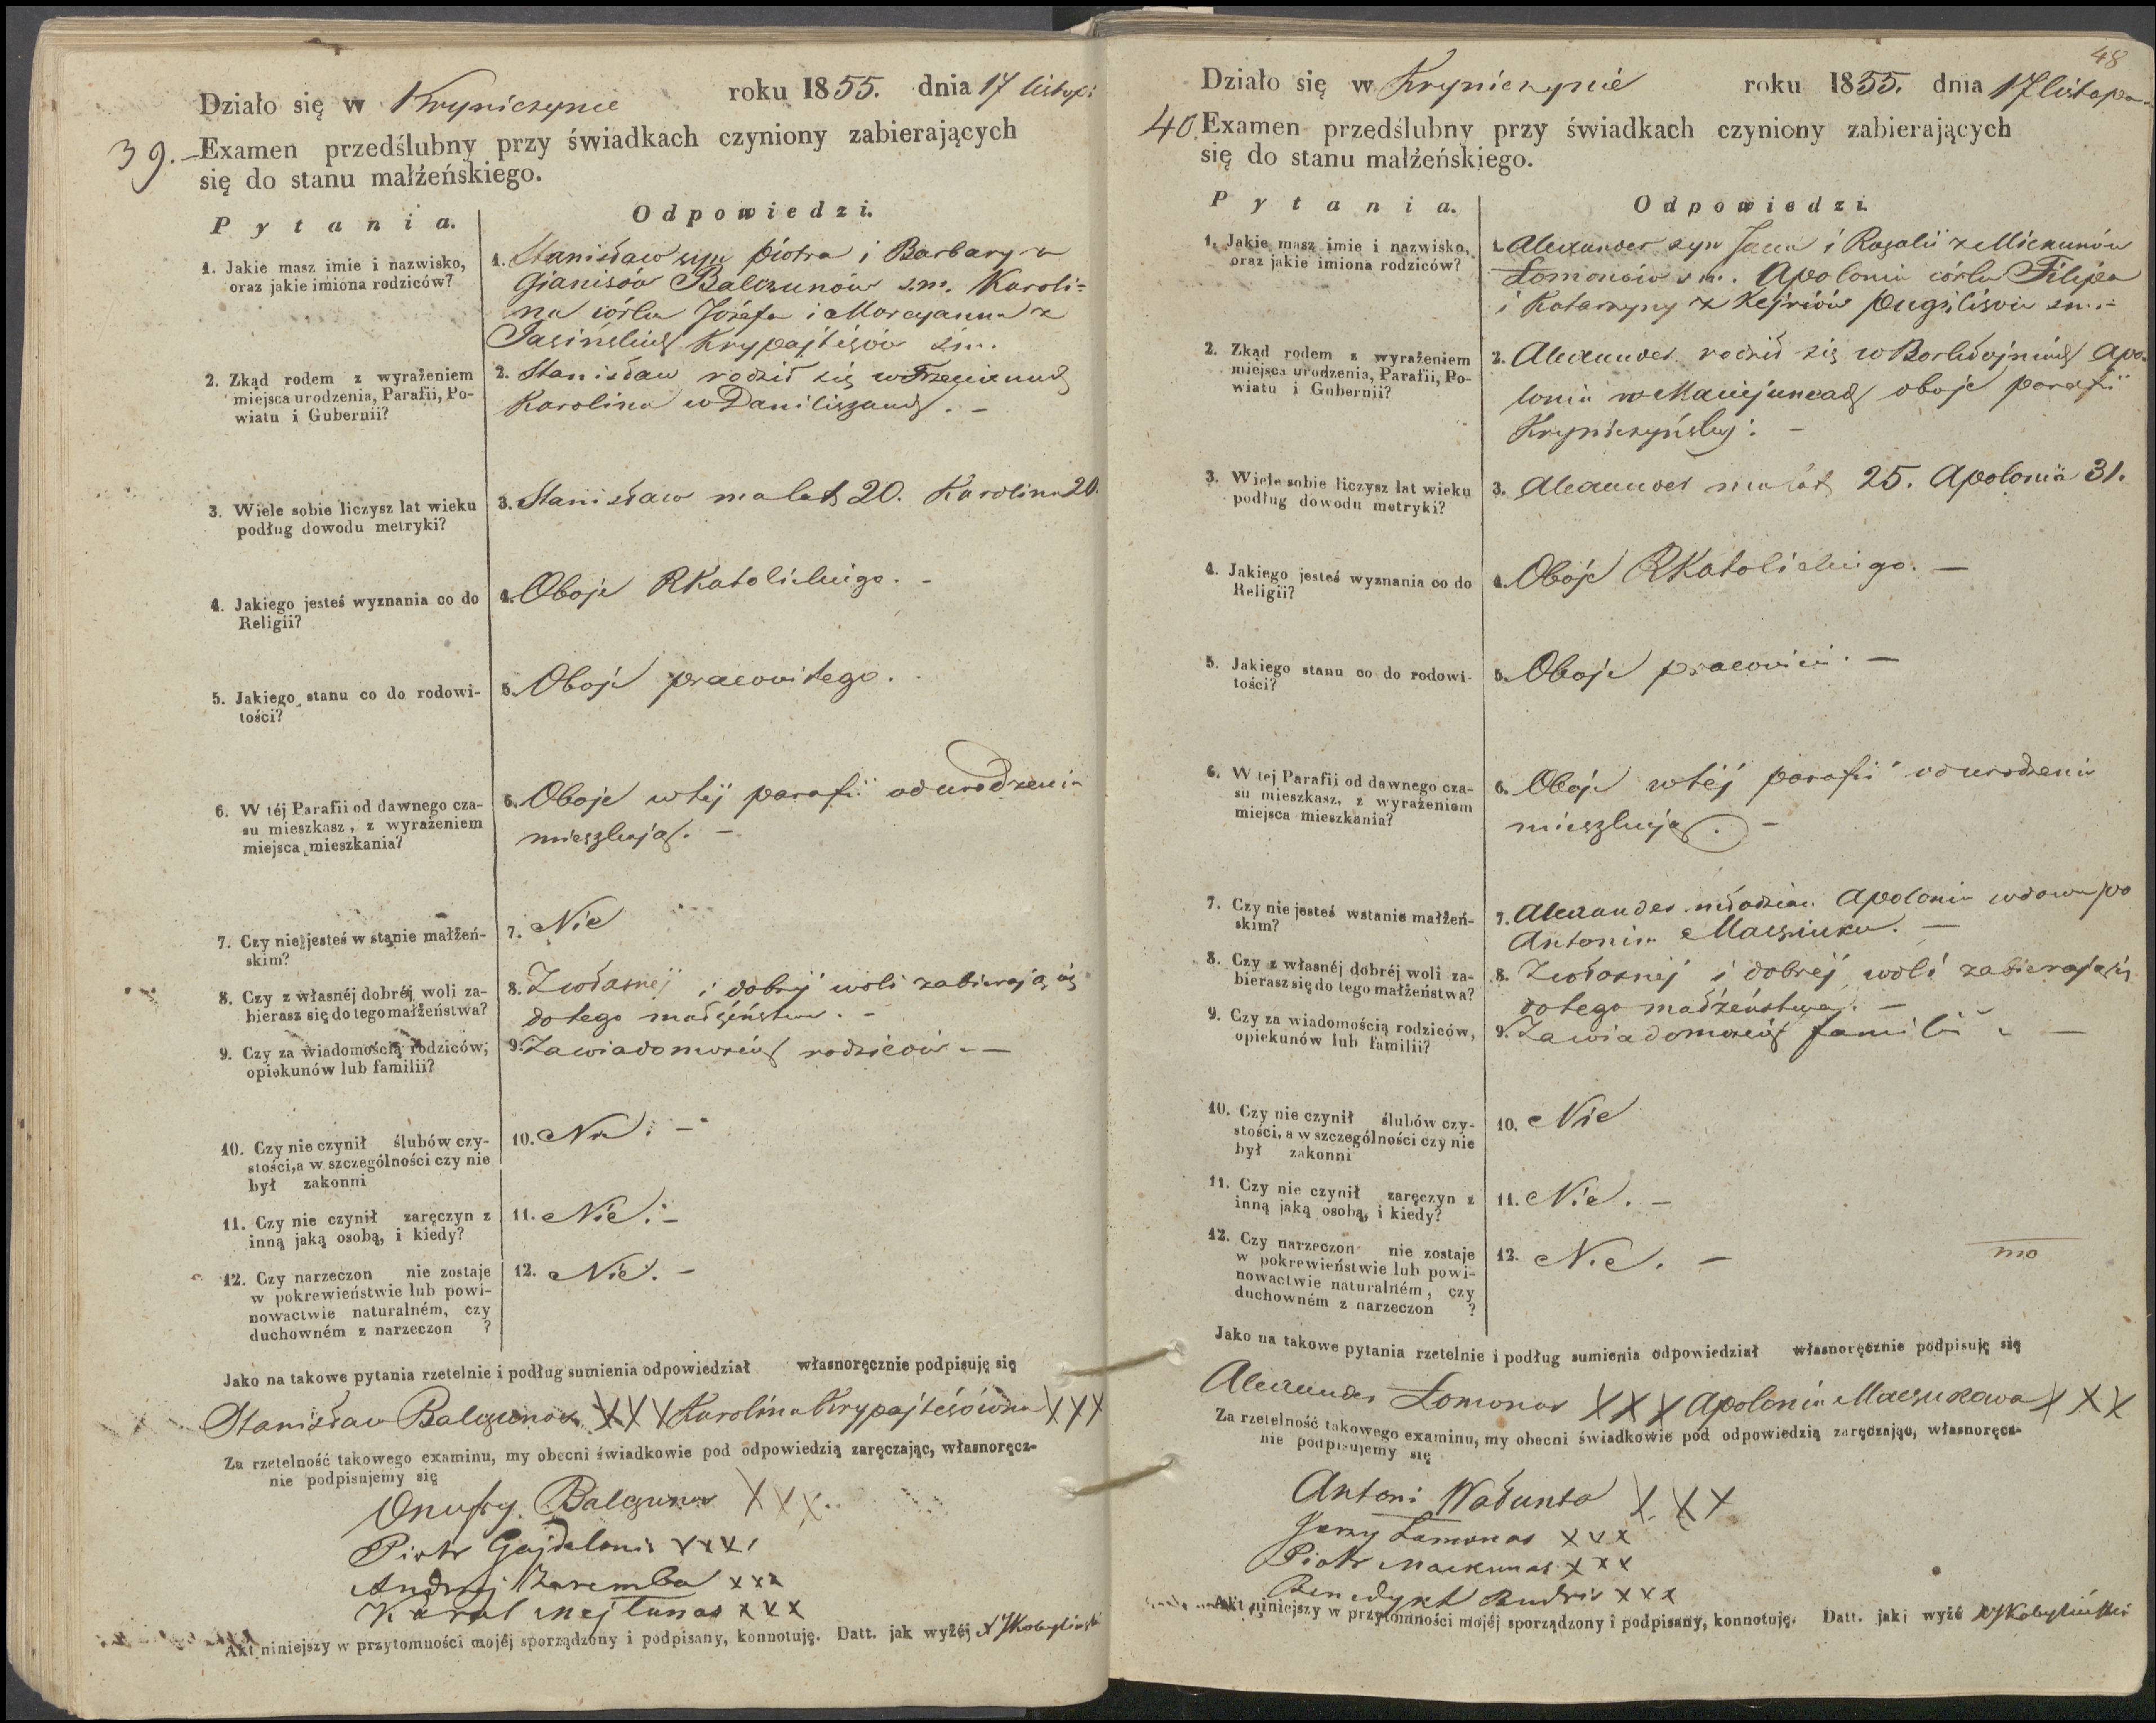 Działo się w Kryniczynie roku 1855. dnia 17 listop:
39. Examen przedślubny przy świadkach czyniony zabierających
się do stanu małżeńskiego.
Pytania. Odpowiedzi.
1. Jakie masz imie i nazwisko,
oraz jakie imiona rodziców?
1. Stanisław syn Piotra i Barbary z
Gianisów Balczunów s.m. Karoli=
na córka Józefa i Marcyanna z
Jasińskich Krypajtisów s.m.
2. Zkąd rodem z wyrażeniem
miejsca urodzenia, Parafii, Po-
wiatu i Gubernii?
2. Stanisław rodził się w
Karolina w Daniliszanch. -
3. Wiele sobie liczysz lat wieku
podług dowodu metryki?
3. Stanisław ma lat 20. Karolina 20.
4. Jakiego jesteś wyznania co do
Religii?
4. Oboje RKatolickiego. -
5. Jakiego stanu co do rodowi-
tości?
5. Oboje pracowitego.
6. W téj Parafii od dawnego cza-
su mieszkasz, z wyrażeniem
miejsca mieszkania?
6. Oboje w tej parafii od urodzenia
mieszkają. -
7. Czy nie jesteś w stanie małżeń-
skim?
7. Nie
8. Czy z własnéj dobréj woli za-
bierasz się do tego małżeństwa?
8. Z własnej i dobrej woli zabierają się
do tego małżeństwa. -
9. Czy za wiadomością rodziców,
opiekunów lub familii?
9. Za wiadomością rodziców. -
10. Czy nie czynił ślubów czy-
stości, a w szczególności czy nie
był zakonni
10. Nie. -
11. Czy nie czynił zaręczyn z
inną jaką osobą, i kiedy?
11. Nie. -
12. Czy narzeczon nie zostaje
w pokrewieństwie lub powi-
nowactwie naturalném, czy
duchowném z narzeczon ?
12. Nie. -
Jako na takowe pytania rzetelnie i podług sumienia odpowiedział własnoręcznie podpisuję się
Stanisław Balczunas XXX Karolina Krypajtisówna XXX
Za rzetelność takowego examinu, my obecni świadkowie pod odpowiedzią zaręczając, własnoręcz-
nie podpisujemy się
Onufry Balczunas XXX.
Piotr Gajdelonis XXX
Andrzej Zaremba XXX
Karol Mejlunas XXX
Akt niniejszy w przytomności mojéj sporządzony i podpisany, konnotuję. Datt. jak wyżéj XJKobyliński
48
Działo się w Kryniczynie roku 1855. dnia 17 listopa
40. Examen przedślubny przy świadkach czyniony zabierających
się do stanu małżeńskiego.
Pytania. Odpowiedzi.
1. Jakie masz imie i nazwisko,
oraz jakie imiona rodziców?
1. Alexander syn Jana i Rozalii z Mickunów
Łomonów s.m. Apolonia córka Filipa
i Katarzyny z Pugilisów s.m. -
2. Zkąd rodem z wyrażeniem
miejsca urodzenia, Parafii, Po-
wiatu i Gubernii?
2. Alexander rodził się w Apo-
lonia w Maciejuncach oboje parafii
Kryniczyńskiej. -
3. Wiele sobie liczysz lat wieku
podług dowodu metryki?
3. Alexander ma lat 25. Apolonia 31.
4. Jakiego jesteś wyznania co do
Religii?
4. Oboje RKatolickiego. -
5. Jakiego stanu co do rodowi-
tości?
5. Oboje pracowici. -
6. W tej Parafii od dawnego cza-
su mieszkasz, z wyrażeniem
miejsca mieszkania?
6. Oboje w téj parafii od urodzenia
mieszkają. -
7. Czy nie jesteś w stanie małżeń-
skim?
7. Alexander młodzian Apolonia wdowa po
Antonim -
8. Czy z własnéj dobréj woli za-
bierasz się do tego małżeństwa?
8. Z własnej i dobrej woli zabierają się
do tego małżeństwa. -
9. Czy za wiadomością rodziców,
opiekunów lub familii?
9. Za wiadomością familii -
10. Czy nie czynił ślubów czy-
stości, a w szczególności czy nie
był zakonni
10. Nie
11. Czy nie czynił zaręczyn z
inną jaką osobą, i kiedy?
11. Nie. -
12. Czy narzeczon nie zostaje
w pokrewieństwie lub powi-
nowactwie naturalném, czy
duchowném z narzeczon ?
12. Nie. - mo
Jako na takowe pytania rzetelnie i podług sumienia odpowiedział własnoręcznie podpisuję się
Alexander Łomonos XXX Apolonia XXX
Za rzetelność takowego examinu, my obecni świadkowie pod odpowiedzią zaręczając, własnoręcz-
nie podpisujemy się
Antoni Wałunta XXX
Jerzy Łamonas XXX
Piotr Mackunas XXX
Benedykt Rudzis XXX
Akt niniejszy w przytomności mojéj sporządzony i podpisany, konnotuję. Datt. jakj wyżé XJKobyliński